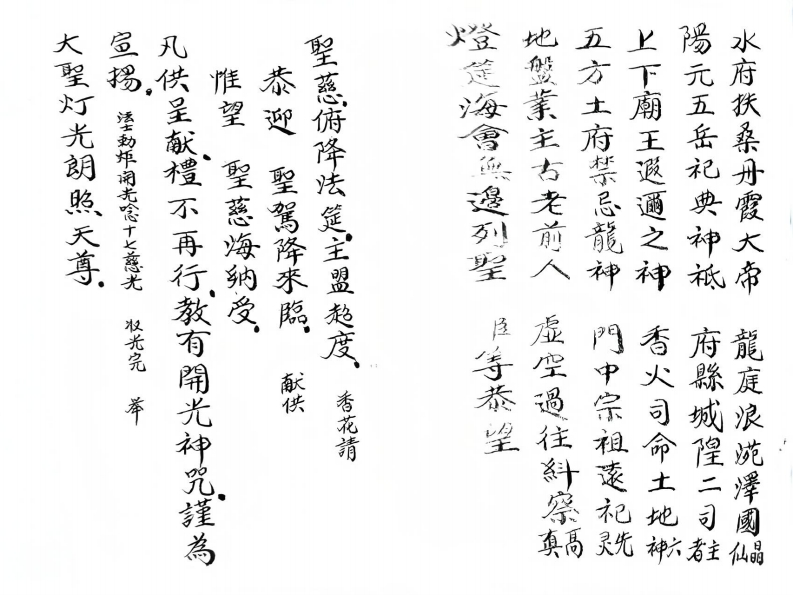 水府扶桑丹霞大帝　龍庭浪苑澤國晶仙
陽元五岳祀典神祇　府縣城隍二司主者
上下廟王遐邇之神　香火司命土地六神
五方土府禁忌龍神　門中宗祖遠祀先灵
地盤業主古老前人　虛空過往糾察高真
燈筵海會無邊列聖　臣等恭望
聖慈俯降法筵主盟超度　香花請
恭迎　聖駕降來臨　献供
惟望　聖慈海納受
凡供呈献禮不再行教有開光神咒謹為
宣揚　法士動炸開光唸十七慈光　收光完　举
大聖灯光朗照天尊